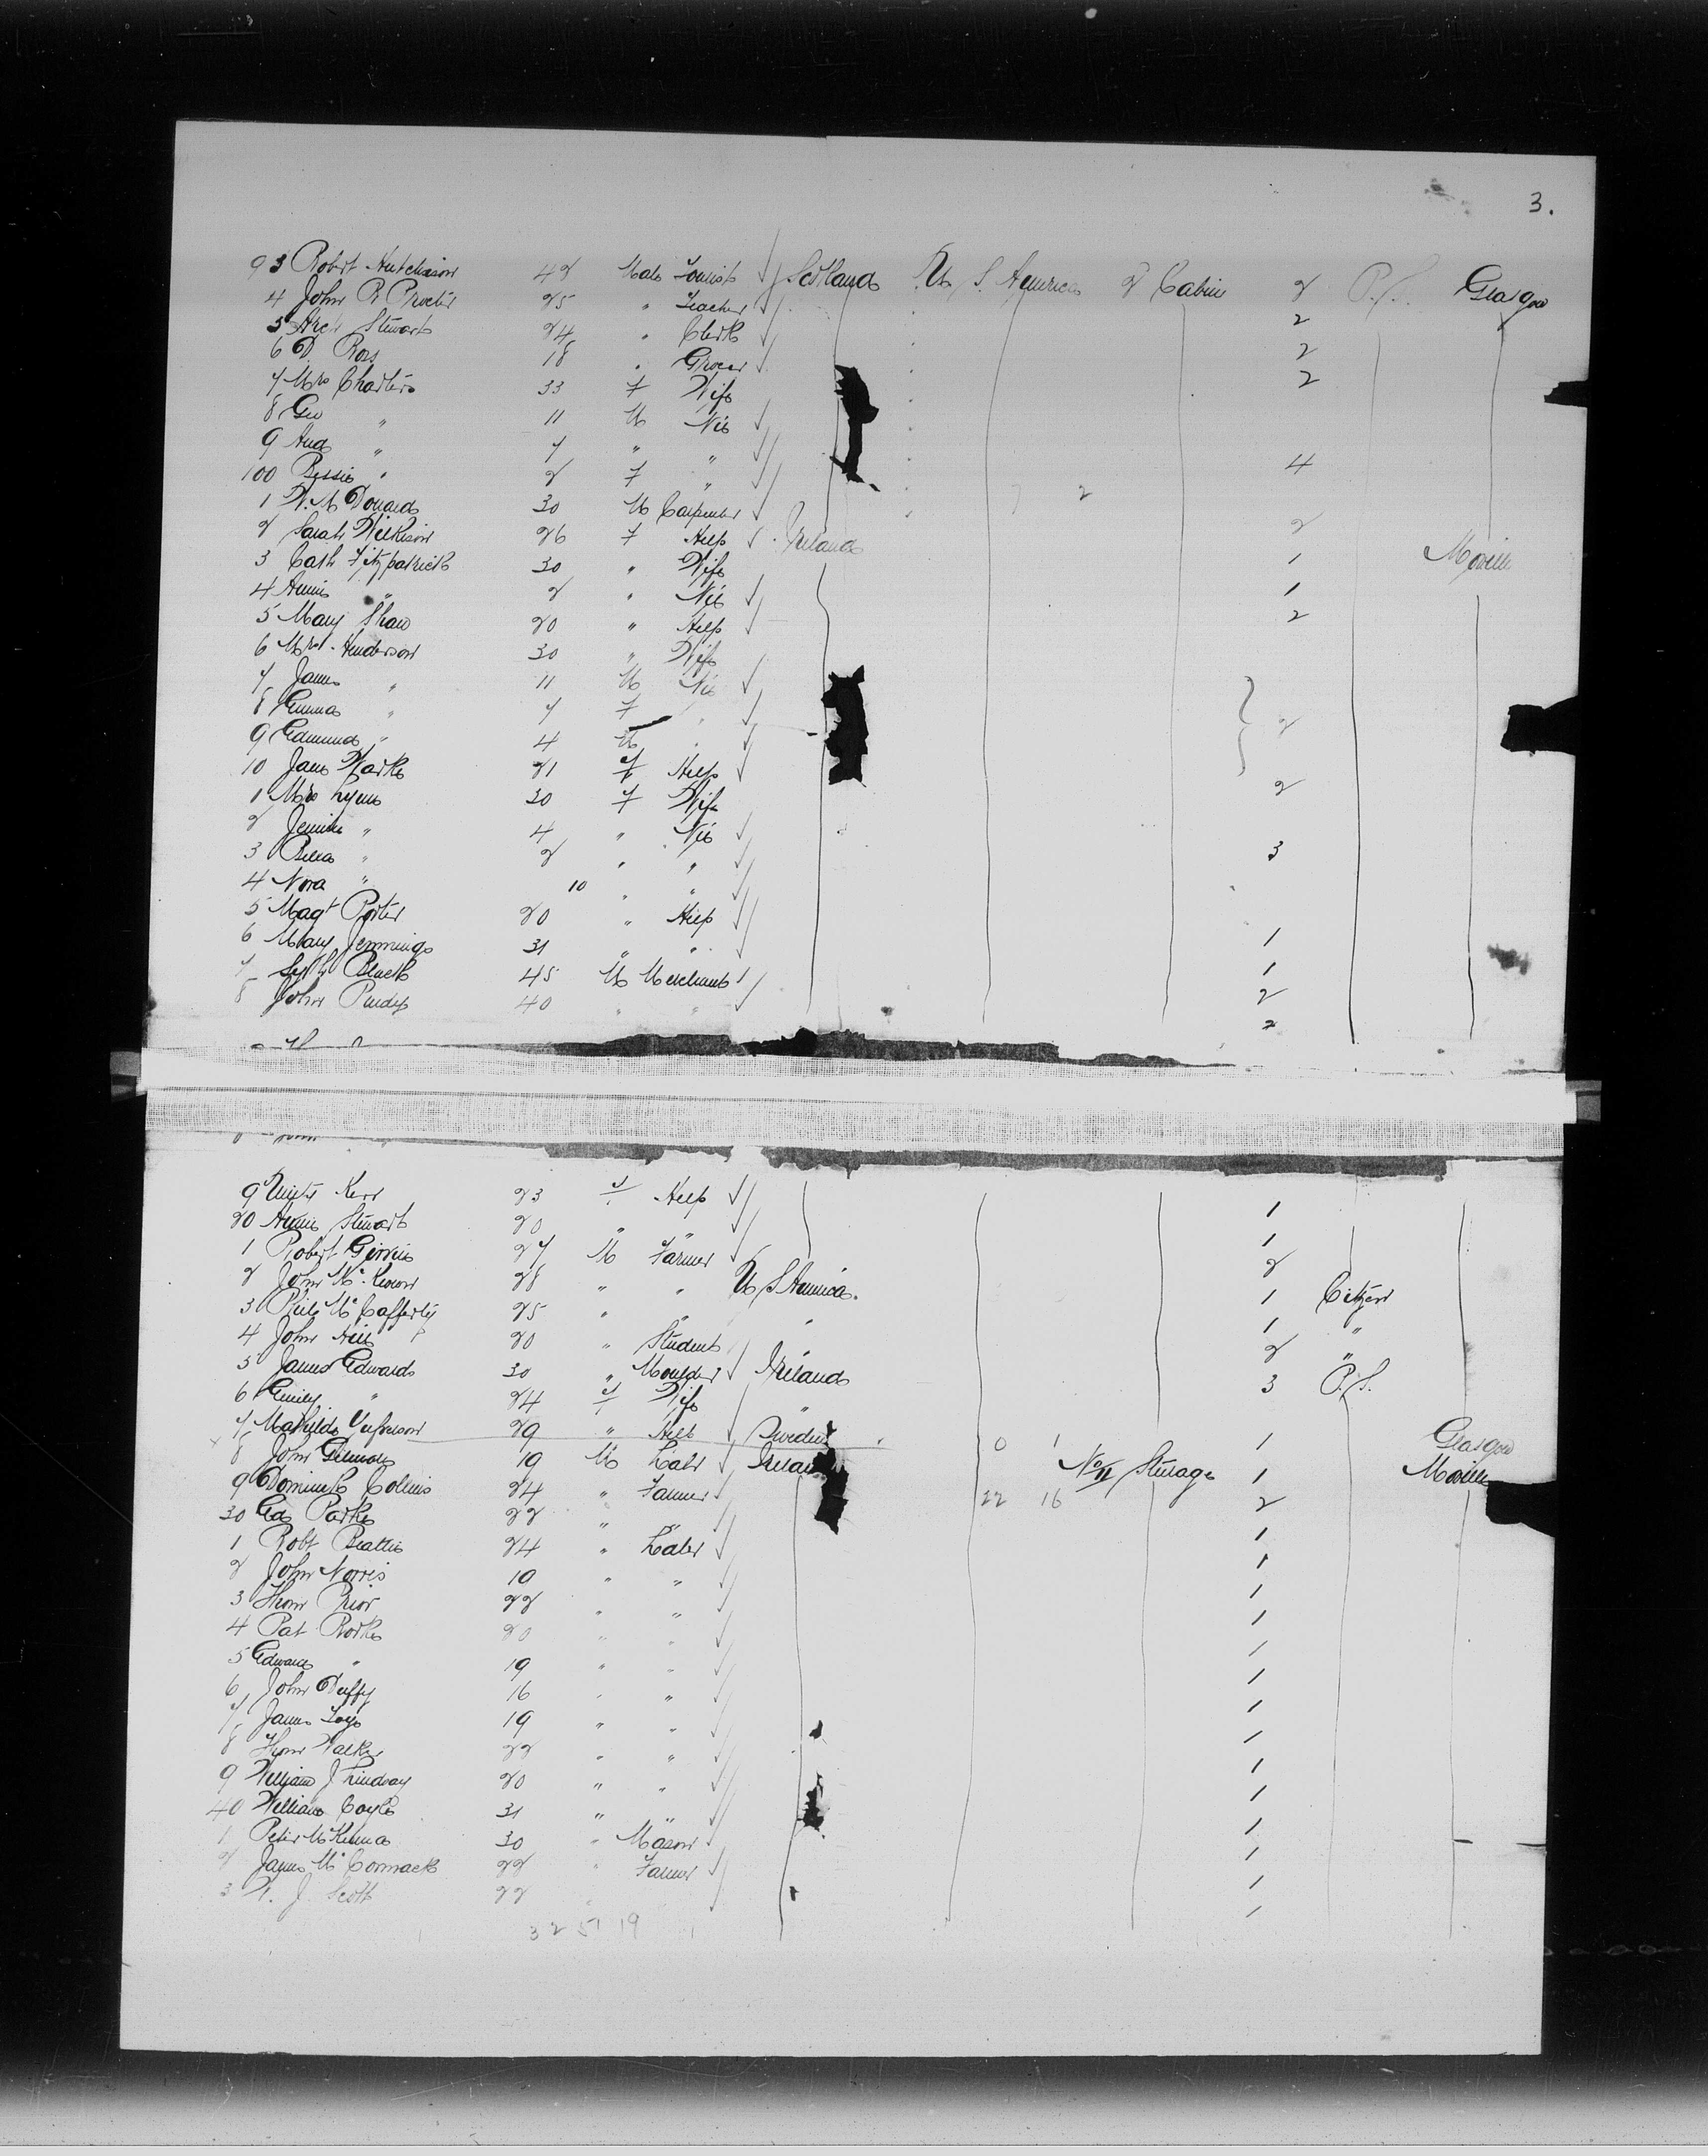 3.
93 Robert Hutchison 42 Male Tourist Scotland U. S. America 2 Cabin 2 P.S. Glasgow
4 John R Procter 25 " Teacher 2
5 Arch Stewart 24 " Clerk 2
6 D. Ross 18 " Grocer 2
7 Mrs Charters 33 F Wife
8 Geo " 11 M Nis
9 And " 7 " " 4
100 Bessie " 2 F "
1 W. M Donard 30 M Carpenter 2
2 Sarah Wilkison 26 F Help Ireland 1 Moville
3 Cath Fitzpatrick 30 " Wife 1
4 Annie " 2 " Nis 2
5 Mary Shaw 20 " Help
6 Mrs Henderson 30 " Wife
7 James " 11 M Nis
8 Emma " 7 F " 2
9 Edmund " 4 M "
10 Jane Warke 21 F Help 2
1 Mrs Lyons 30 F Wife
2 Jennie " 4 " Nis
3 Bella " 2 " " 3
4 Nora " 10 " "
5 Magt Porter 20 " Help
6 Mary Jennings 31 " " 1
7 Black 45 M Merchant 1
8 John 40 " " 2
2
9 Kerr 23 F Help 1
20 Annie Stewart 20 " " 1
1 Robert Girvin 27 M Farmer 2
2 John McKeown 28 " " U S America. 1 Citizen
3 McCafferty 25 " " " 1 "
4 John Hill 20 " Student " 2 "
5 James Edwards 30 " Moulder Ireland 3 P.S.
6 Emily " 24 F Wife "
7 Mathilda 29 " Help Sweden 0 1 1 Glasgow
8 John 19 M Labr Ireland No 11 Sturage 1 Moville
9 Dominick Collins 24 " Farmer 22 16 2
30 Geo Parke 22 " " 1
1 Robt Beattie 24 " Labr 1
2 John Norris 19 " " 1
3 Thom Prior 22 " " 1
4 Pat Rorke 20 " " 1
5 Edward " 19 " " 1
6 John Duffy 16 " " 1
7 James 19 " " 1
8 Thom Walker 22 " " 1
9 William J Lindsay 20 " " 1
40 William Coyle 31 " " 1
1 Peter McKenna 30 " Mason 1
2 James McCormack 22 " Farmer 1
3 W. J. Scott 22 " 1
32 51 19